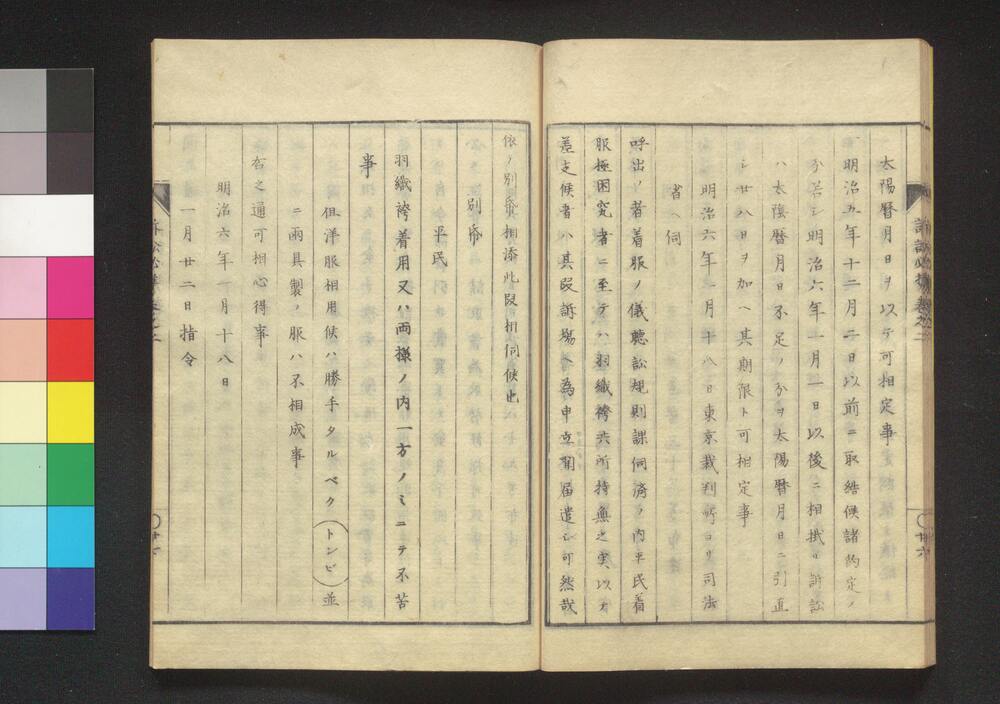 太陽暦月日ヲ以テ可相定事
一明治五年十二月二日以前ニ取結候諸約定ノ
分若シ明治六年一月一日以後ニ相掛ル訴訟
ハ太陰暦月日不足ノ分ヲ太陽暦月日ニ引直
シ廿八日ヲ加ヘ其期限ト可相定事
明治六年一月十八日東京裁判所ヨリ司法
省ヘ伺
呼出ノ者着服ノ儀聴訟規則課伺済ノ内平民着
服極困究者ニ至テハ羽織袴共所持無之実以テ
差支候者ハ其段訴場ヘ為申立聞届遣シ可然哉
依ノ別帋相添此段相伺候也
別帋
平民
羽織袴着用又ハ両様ノ内一方ノミニテ不苦
事
但洋服相用候ハ勝手タルベク(トンビ)並
ニ雨具製ノ服ハ不相成事
書之通可相心得事
明治六年一月十八日
一月廿二日指令
廿六
廿七